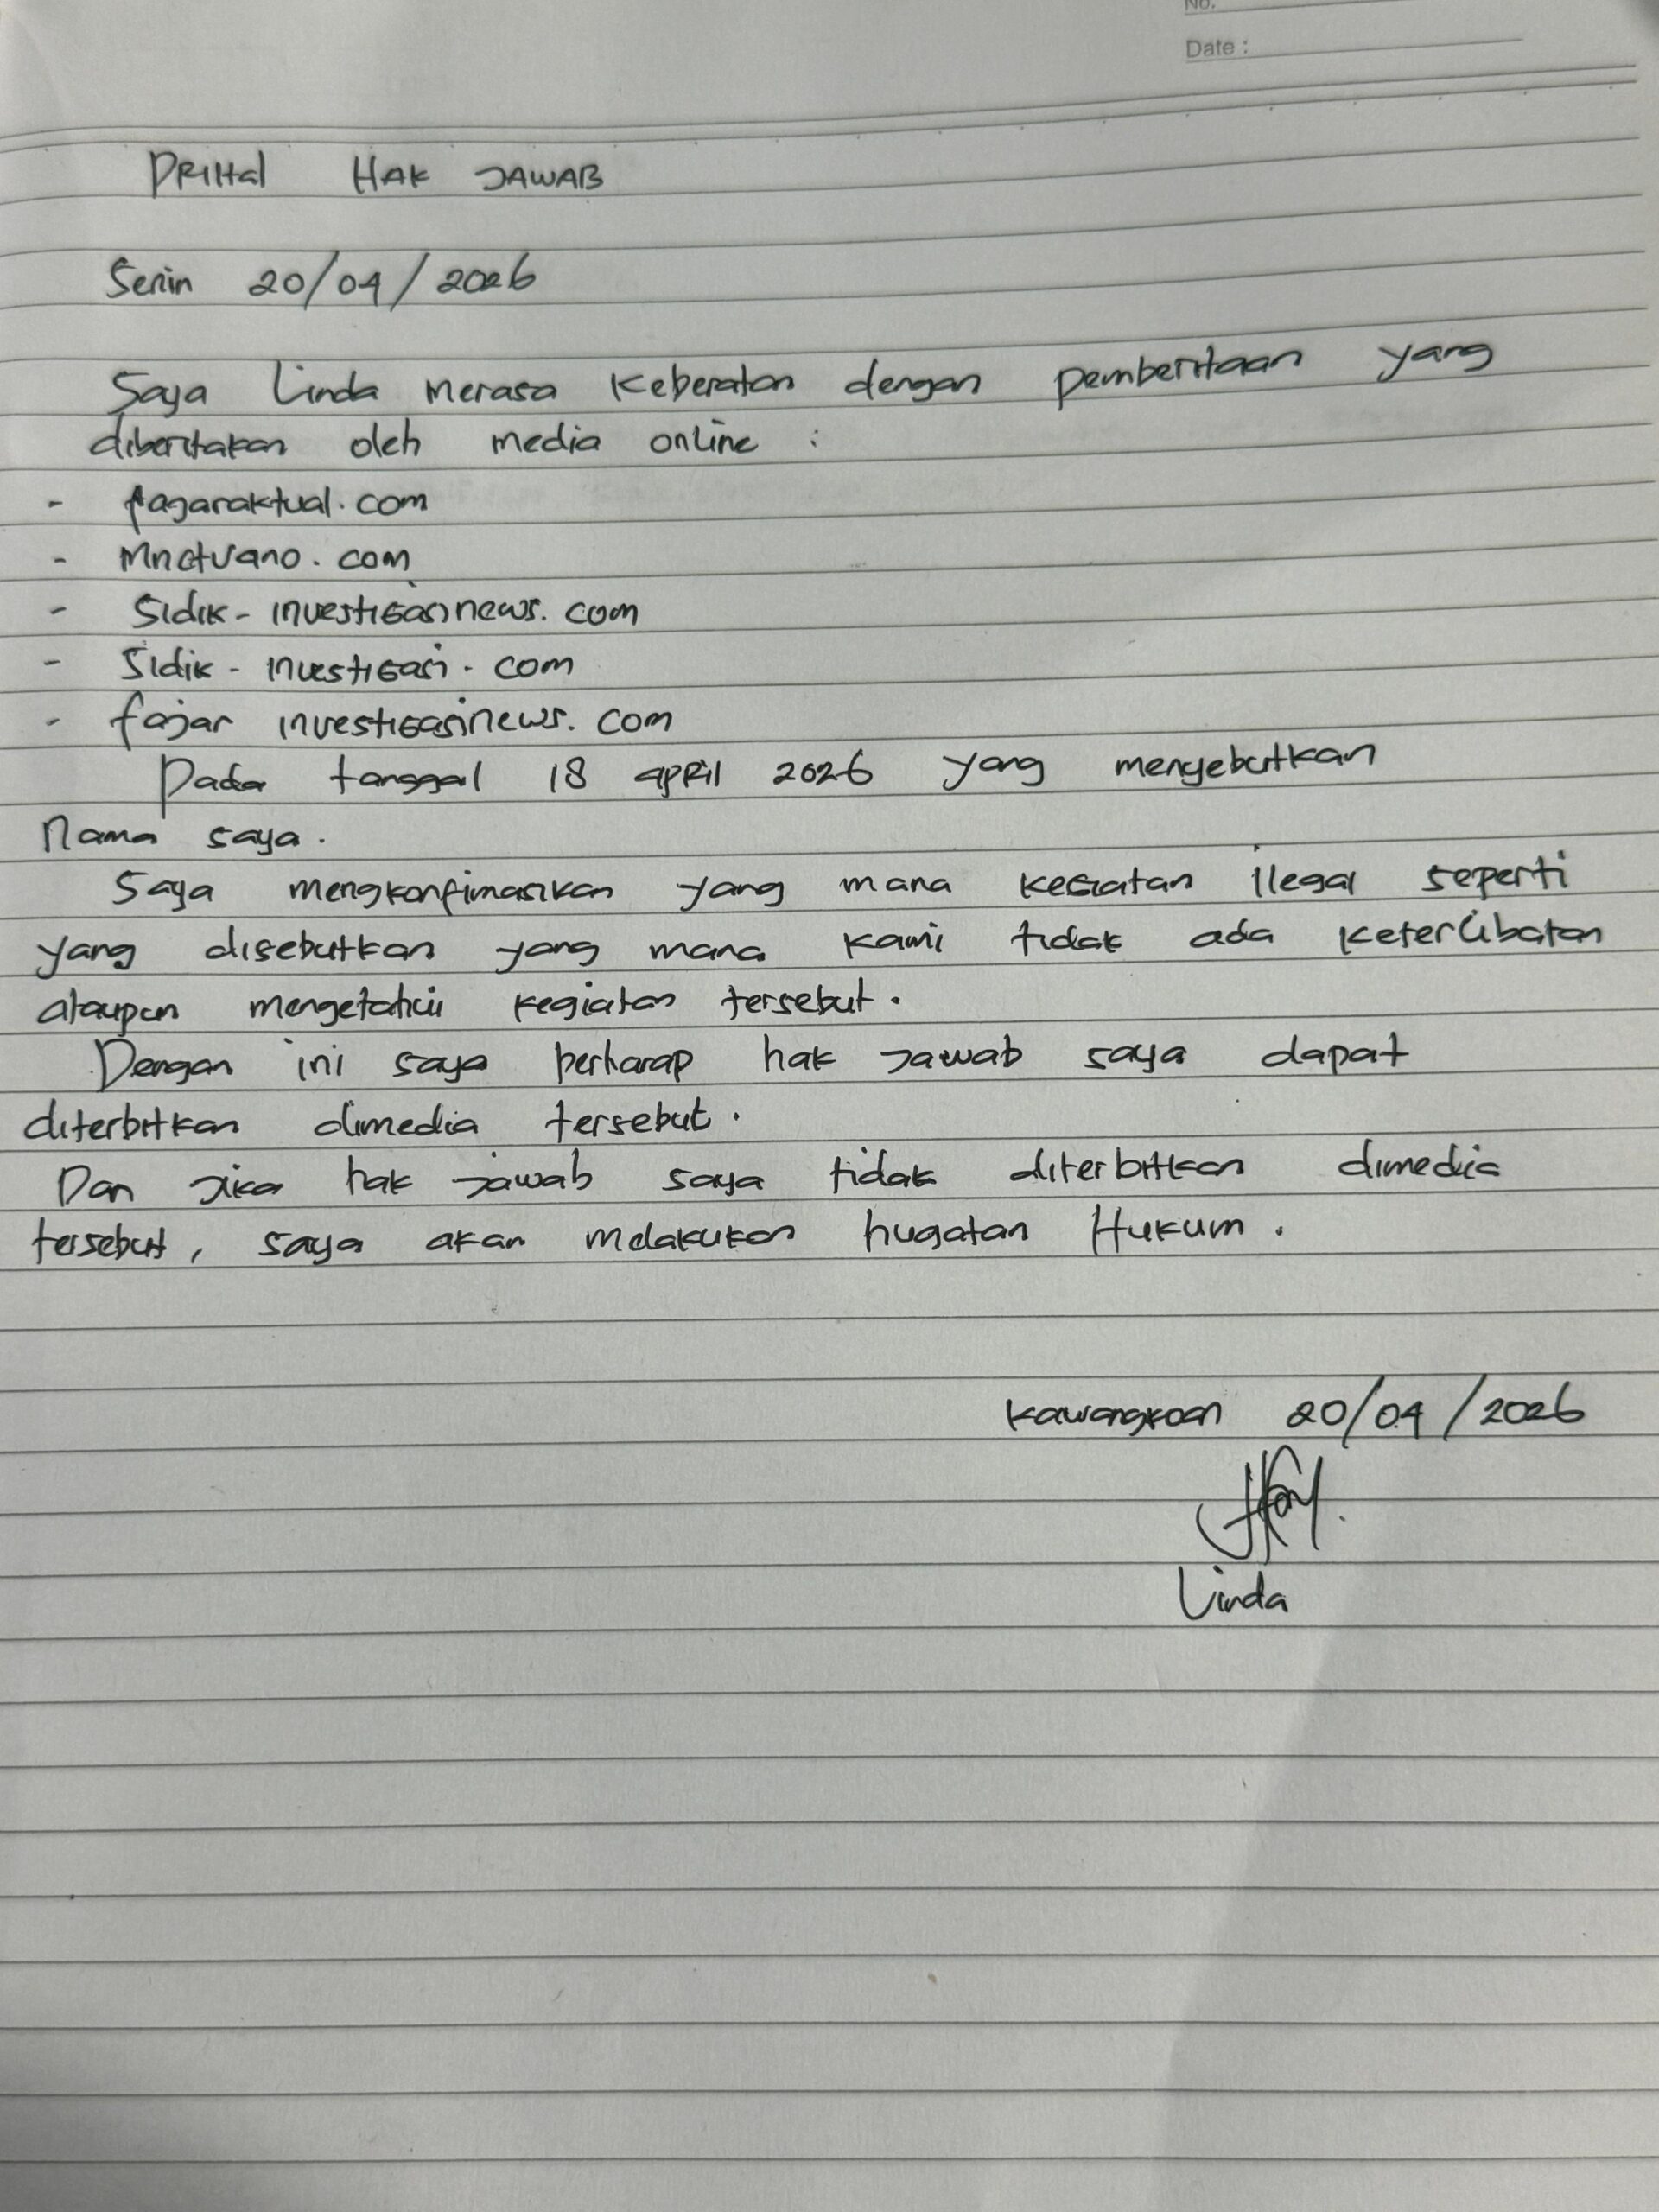 No.
Date :
PRIHAL HAK JAWAB
Senin 20/04/2026
Saya Linda merasa keberatan dengan pemberitaan yang
diberitakan oleh media online :
- Pagaraktual.com
- sidik-investigasinews.com
- Sidik-investigasi.com
- fajar investigasinews.com
Pada tanggal 18 april 2026 yang menyebutkan
Nama saya.
Saya mengkonfimasikan yang mana kegiatan ilegal seperti
yang disebutkan yang mana kami tidak ada keterlibatan
ataupun mengetahui kegiatan tersebut.
Dengan ini saya berharap hak jawab saya dapat
diterbitkan dimedia tersebut.
Dan jika hak jawab saya tidak diterbitkan dimedia
tersebut, saya akan melakukan hugatan Hukum.
Kawangkoan 20/04/2026
Linda